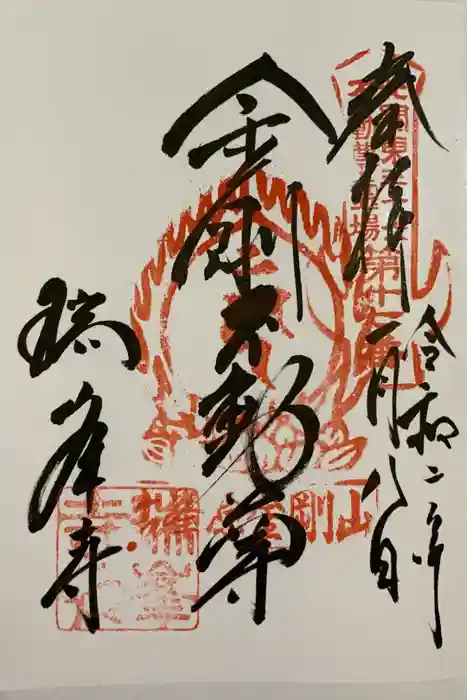 奉拝
令和二年
一月八日
関東三十六
不動尊霊場
第十七番
金剛不動尊
金剛山
瑞峯寺